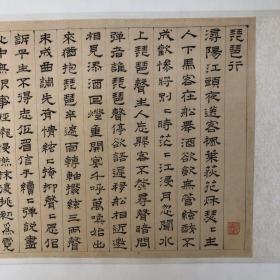 琵琶行
潯陽江頭夜送客楓葉荻花秋瑟〻主
人下馬客在船舉酒欲飲無管絃醉不
成歡慘將別〻時茫〻江浸月忽聞水
上琵琶聲主人忘歸客不發尋聲暗問
彈者誰琵琶聲停欲語遲移船相近邀
相見添酒回燈重開宴千呼萬喚始出
來猶抱琵琶半遮面轉軸撥絃三兩聲
未成曲調先有情絃〻掩抑聲〻思似
訴平生不得志低眉信手續〻彈說盡
心中無限事輕攏慢撚抹復挑初為霓